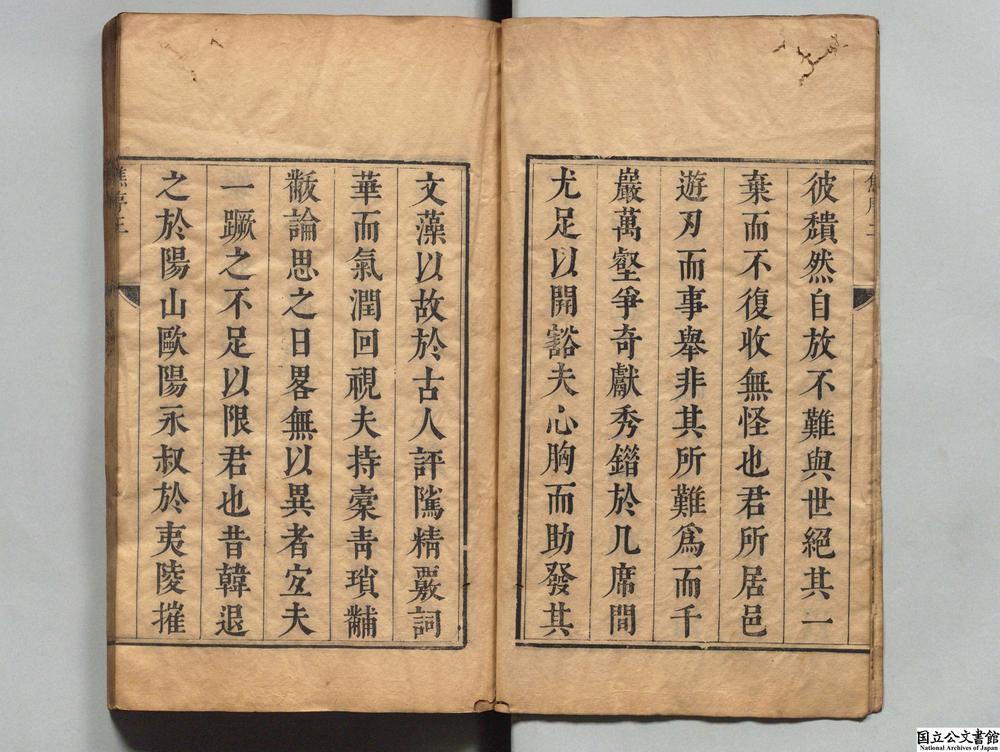 彼䫴然自放不難與世絕其一
棄而不復收無怪也君所居邑
遊刃而事舉非其所難爲而千
巖萬壑爭奇獻秀錯於几席間
尤足以開豁夫心胸而助發其
文藻以故於古人評隲精覈詞
華而氣潤回視夫持橐靑瑣黼
黻論思之日畧無以異者宜夫
一蹶之不足以限君也昔韓退
之於陽山歐陽永叔於夷陵摧
焦序
国立公文書館
National Archives of Japan